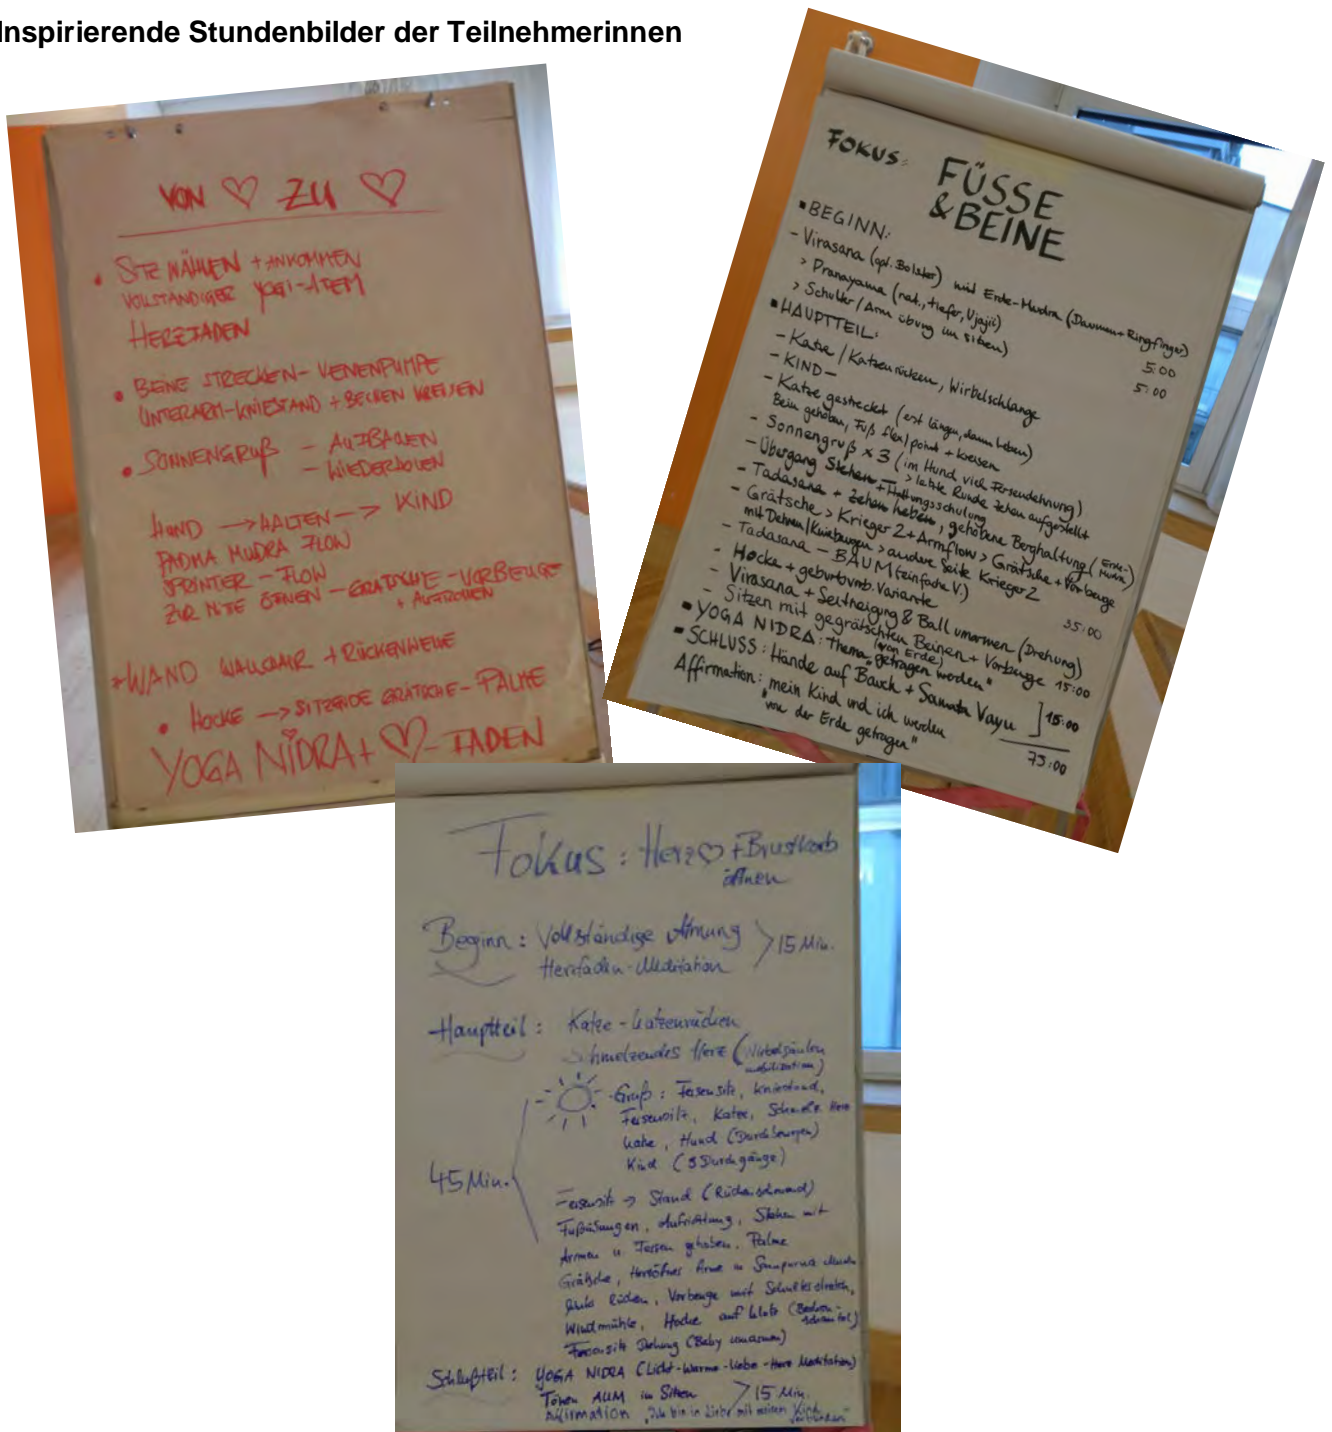 Inspirierende Stundenbilder der Teilnehmerinnen
VON ♡ ZU ♡
• SITZ WÄHLEN + ANKOMMEN
VOLLSTÄNDIGER YOGI-ATEM
HERZFADEN
• BEINE STRECKEN - VENENPUMPE
UNTERARM-KNIESTAND + BECKEN KREISEN
• SONNENGRUß - AUFBAUEN
- WIEDERHOLEN
HUND → HALTEN → KIND
PADMA MUDRA FLOW
SPRINTER - FLOW
ZUR MITE ÖFFNEN - GRÄTSCHE - VORBEUGE
+ AUFROLLEN
WAND + RÜCKENWELLE
• HOCKE → SITZENDE GRÄTSCHE - PALME
YOGA NIDRA + ♡ - FADEN
FOKUS: FÜSSE
& BEINE
▪ BEGINN:
- Virasana (opt. Bolster) mit Erde-Mudra (Daumen + Ringfinger)
> Pranayama (nat., tiefer, Ujajii) 5:00
> Schulter/Arm übung im sitzen) 5:00
▪ HAUPTTEIL:
- Katze / Katzenrücken, Wirbelschlange
- KIND -
- Katze gestreckt (erst längen, dann heben)
Bein gehoben, Fuß flex/point + kreisen
- Sonnengruß x 3 (im Hund viel Fersendehnung)
> letzte Runde Zehen aufgestellt
- Übergang Stehen + Haltungsschulung
- Tadasana + Zehen heben, gehobene Berghaltung (Erde-Mudra)
- Grätsche > Krieger 2 + Armflow > Grätsche + Vorbeuge
mit Dehnen/Kniebeugen > andere Seite Krieger 2
- Tadasana - BAUM (einfache V.)
- Hocke + geburtsvorb. Variante 35:00
- Virasana + Seitneigung & Ball umarmen (Drehung)
- Sitzen mit gegrätschten Beinen + Vorbeuge
▪ YOGA NIDRA: Thema "getragen werden" (von Erde) 15:00
▪ SCHLUSS: Hände auf Bauch + Samata Vayu
Affirmation: "mein Kind und ich werden 15:00
von der Erde getragen"
75:00
Fokus: Herz ♡ + Brustkorb
öffnen
Beginn: Vollständige Atmung 15 Min.
Herzfaden-Meditation
Hauptteil: Katze - Katzenrücken
Schmelzendes Herz (Wirbelsäulen
mobilization)
-Gruß: Fersensitz, Kniestand,
Fersensitz, Katze, Schmelz. Herz
Katze, Hund (Durchbewegen)
Kind (3 Durchgänge)
45 Min.
Fersensitz → Stand (Rücken rund)
Fußübungen, Aufrichtung, Stehen mit
Armen u. Fersen gehoben, Palme
Grätsche, Herzöffner Arme in Sampurna Mudra
Rücken, Vorbeuge mit Schulterstretch,
Windmühle, Hocke auf Klotz (Beckenschaukel)
Fersensitz Drehung (Baby umarmen)
Schlußteil: YOGA NIDRA (Licht-Wärme-Liebe-Herz Meditation)
Tönen AUM im Sitzen 15 Min.
Affirmation "Ich bin in Liebe mit meinem Kind verbunden"